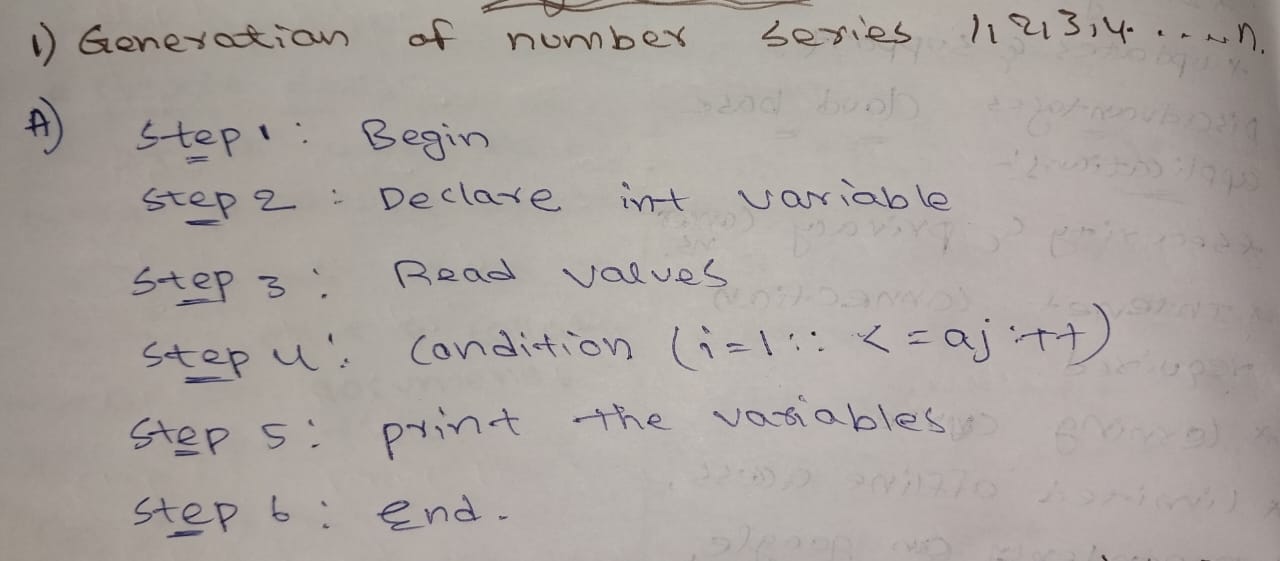 1) Generation of number series 1, 2, 3, 4. .... n.
A) Step 1 : Begin
Step 2 : Declare int variable
Step 3 : Read values
Step 4 : Condition (i=1 :: <=aj :++)
Step 5 : print the variables
Step 6 : End.